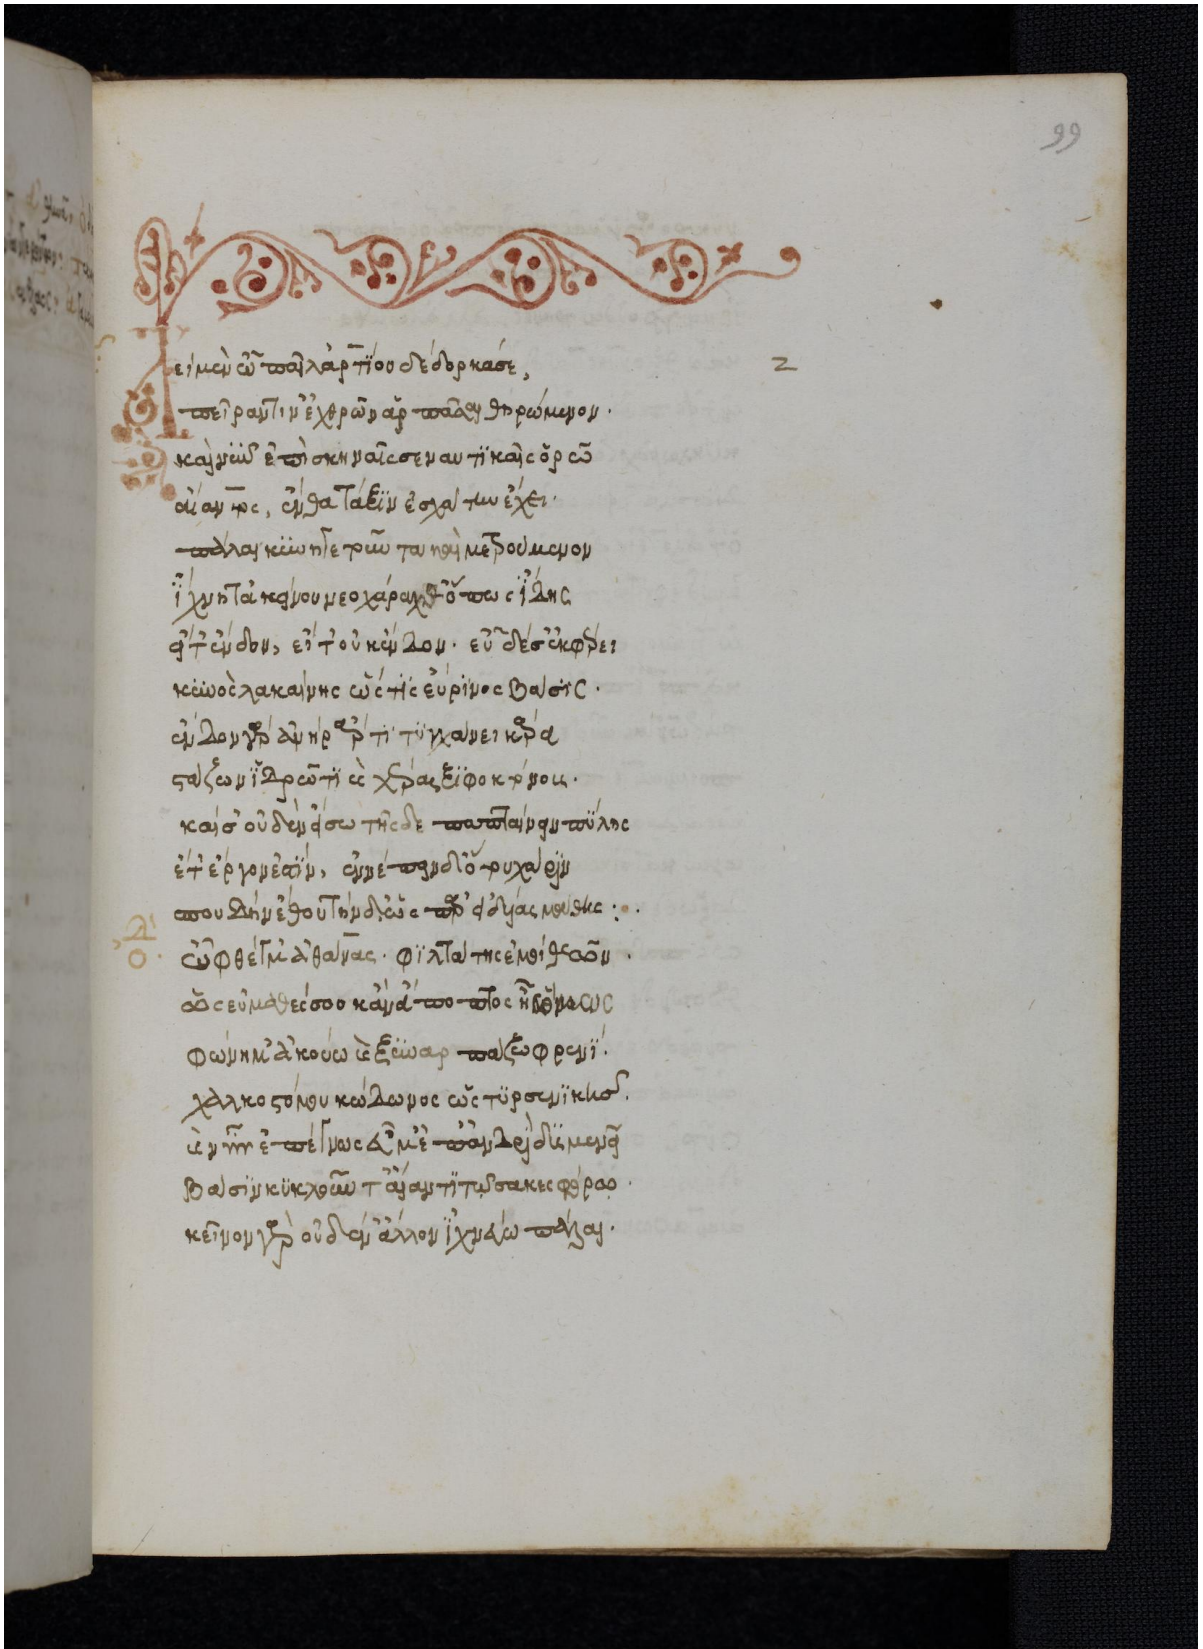 99
Ἀεὶ μὲν ὦ παῖ λαρτίου δέδορκά σε,
2
πεῖραν τιν' ἐχθρῶν ἁρπάσαι θηρώμενον·
καὶ νῦν ἐπὶ σκηναῖς σε ναυτικαῖς ὁρῶ
αἴαντος, ἔνθα τάξιν ἐσχάτην ἔχει·
πάλαι κυνηγετοῦντα καὶ μετρούμενον
ἴχνη τὰ κείνου νεοχάραχθ' ὅπως ἴδης
εἴτ' ἔνδον, εἴτ' οὐκ ἔνδον· εὖ δέ σ' ἐκφέρει
κυνὸς λακαίνης ὥς τις εὔρινος βάσις·
ἔνδον γὰρ ἁνὴρ ἄρτι τυγχάνει κάρα
στάζων ἱδρῶτι καὶ χέρας ξιφοκτόνους·
καί σ' οὐδὲν εἴσω τῆςδε παπταίνειν πύλης
ἔτ' ἔργον ἐστὶν, ἐννέπειν δ' ὅτου χάριν
σπουδὴν ἔθου τήνδ' ὡς παρ' εἰδυίας μάθης :·
ὀδ
ὦ φθέγμ' ἀθάνας· φιλτάτης ἐμοὶ θεῶν·
ὡς εὐμαθές σου κἂν ἄποπτος ἦς ὅμως
φώνημ' ἀκούω καὶ ξυναρπάζω φρενί·
χαλκοστόμου κώδωνος ὡς τυρσενικῆς·
καὶ νῦν ἐπέγνως εὖ μ' ἐπ' ἀνδρὶ δυσμενεῖ
βάσιν κυκλοῦντ' αἴαντι τῶ σακεσφόρω·
κεῖνον γὰρ οὐδέν' ἄλλον ἰχνεύω πάλαι·